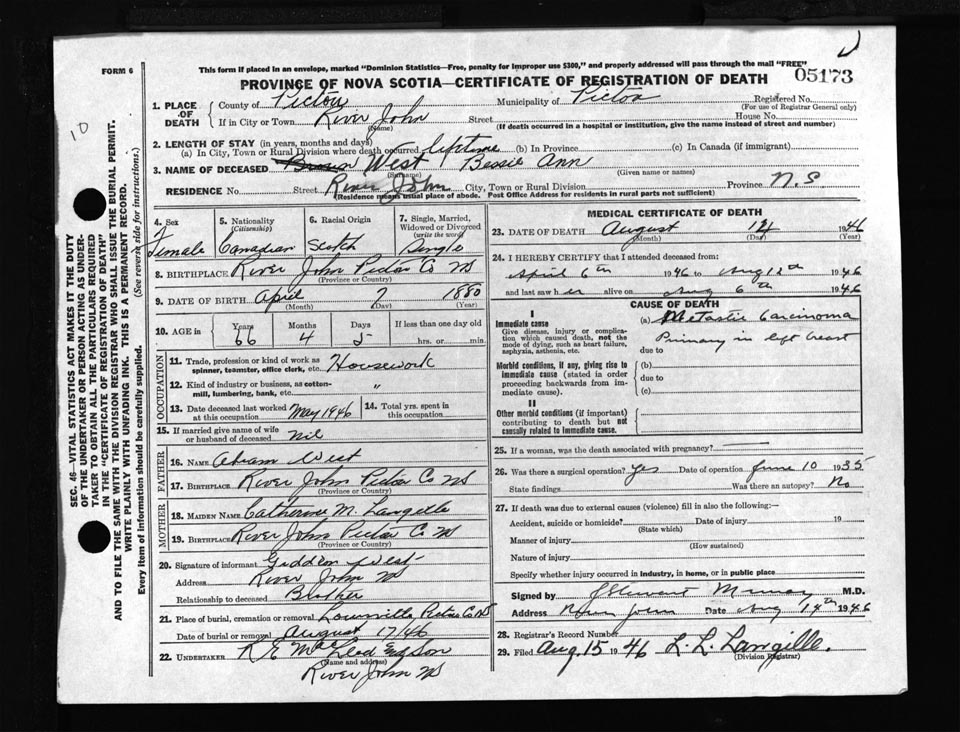 FORM 6
This form if placed in an envelope, marked "Dominion Statistics—Free, penalty for improper use $300," and properly addressed will pass through the mail "FREE"
PROVINCE OF NOVA SCOTIA—CERTIFICATE OF REGISTRATION OF DEATH
05173
10
1. PLACE OF DEATH
County of Pictou Municipality of Pictou Registered No.
(For use of Registrar General only)
If in City or Town River John Street House No.
(Name) (If death occurred in a hospital or institution, give the name instead of street and number)
2. LENGTH OF STAY (in years, months and days)
(a) In City, Town or Rural Division where death occurred lifetime (b) In Province (c) In Canada (if immigrant)
3. NAME OF DECEASED Brown West Bessie Ann
(Surname) (Given name or names)
RESIDENCE No. Street River John City, Town or Rural Division Province N.S.
(Residence means usual place of abode. Post Office Address for residents in rural parts not sufficient)
4. Sex
Female
5. Nationality
(Citizenship)
Canadian
6. Racial Origin
Scotch
7. Single, Married, Widowed or Divorced
(write the word)
Single
8. BIRTHPLACE River John Pictou Co NS
(Province or Country)
9. DATE OF BIRTH April 7 1880
(Month) (Day) (Year)
10. AGE in Years Months Days If less than one day old
66 4 5 hrs. or min.
OCCUPATION
11. Trade, profession or kind of work as
spinner, teamster, office clerk, etc. Housework
12. Kind of industry or business, as cotton-
mill, lumbering, bank, etc. "
13. Date deceased last worked
at this occupation May 1946
14. Total yrs. spent in
this occupation
15. If married give name of wife
or husband of deceased Nil
FATHER
16. NAME Abram West
17. BIRTHPLACE River John Pictou Co NS
(Province or Country)
MOTHER
18. MAIDEN NAME Catherine M. Langille
19. BIRTHPLACE River John Pictou Co NS
(Province or Country)
20. Signature of informant Giddeon West
Address River John NS
Relationship to deceased Brother
21. Place of burial, cremation or removal Louisville Pictou Co NS
Date of burial or removal August 17/46
22. UNDERTAKER R E MacLeod & Son
(Name and address)
River John NS
MEDICAL CERTIFICATE OF DEATH
23. DATE OF DEATH August 12 1946
(Month) (Day) (Year)
24. I HEREBY CERTIFY that I attended deceased from:
April 6th 1946 to Aug 12th 1946
and last saw h er alive on Aug 6th 1946
CAUSE OF DEATH
I
Immediate cause
Give disease, injury or complica-
tion which caused death, not the
mode of dying, such as heart failure,
asphyxia, asthenia, etc.
(a) Metastic Carcinoma
Primary in left breast
due to
Morbid conditions, if any, giving rise to
immediate cause (stated in order
proceeding backwards from im-
mediate cause).
(b)
due to
(c)
II
Other morbid conditions (if important)
contributing to death but not
causally related to immediate cause.
25. If a woman, was the death associated with pregnancy?
26. Was there a surgical operation? Yes Date of operation June 10 1935
State findings Was there an autopsy? No
27. If death was due to external causes (violence) fill in also the following:—
Accident, suicide or homicide? Date of injury 19
(State which)
Manner of injury
(How sustained)
Nature of injury
Specify whether injury occurred in industry, in home, or in public place
Signed by J Stewart Murray M.D.
Address River John Date Aug 14th 1946
28. Registrar's Record Number
29. Filed Aug. 15 1946 L. L. Langille.
(Division Registrar)
SEC. 46—VITAL STATISTICS ACT MAKES IT THE DUTY
OF THE UNDERTAKER OR PERSON ACTING AS UNDER-
TAKER TO OBTAIN ALL THE PARTICULARS REQUIRED
IN THE "CERTIFICATE OF REGISTRATION OF DEATH"
AND TO FILE THE SAME WITH THE DIVISION REGISTRAR WHO SHALL ISSUE THE BURIAL PERMIT.
WRITE PLAINLY WITH UNFADING INK. THIS IS A PERMANENT RECORD.
Every item of information should be carefully supplied. (See reverse side for instructions.)